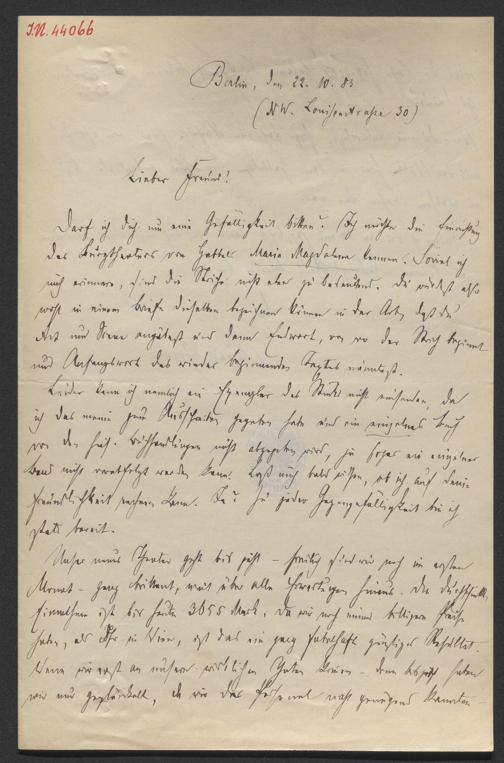 I.N. 44066
Berlin, den 22. 10. 83
(NW. Louisenstraße 30)
Lieber Freund!
Darf ich Dich um eine Gefälligkeit bitten? Ich möchte die Einrichtung
des Burgtheaters von Hebbels Maria Magdalena kennen. Soviel ich
mich erinnere, sind die Striche nicht eben zu bedeutend. Du würdest also
wohl in einem Briefe dieselben bezeichnen können in der Art, daß Du
Akt und Scene angäbest und dann Endwort, von wo der Strich beginnt
und Anfangswort des wieder beginnenden Textes nennest.
Leider kann ich nämlich ein Exemplar des Stücks nicht einsenden, da
ich das meine zum Ausschreiben gegeben habe und ein einzelnes Buch
von den hies. Buchhandlungen nicht abgegeben wird, ja sogar ein einzelner
Band nicht werden kann. Laß mich bald wissen, ob ich auf Deine
Freundlichkeit rechnen kann. Zu jeder Gegengefälligkeit bin ich
stets bereit.
Unser neues Theater geht bis jetzt – freilich sind wir noch im ersten
Monat – ganz brillant, weit über alle Erwartungen hinaus. Die Durchschnitts-
Einnahme ist bis heute 3655 Mark. Da wir noch immer billigere Preise
haben, als Ihr in Wien, ist das ein ganz fabelhaft günstiges Resultat.
Wenn wir erst an unsere wirklichen Thaten kommen – denn bis jetzt haben
wir nur , da wir das Personal nicht genügend kannten –